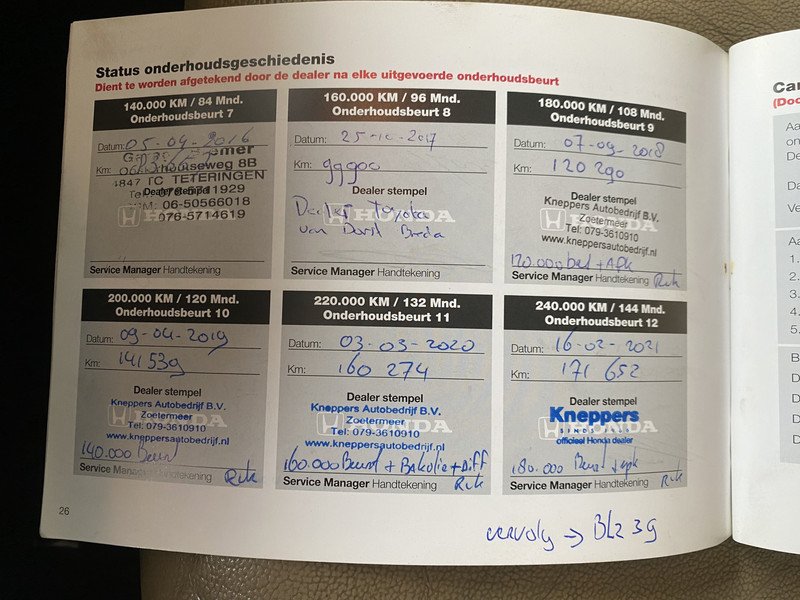 Status onderhoudsgeschiedenis
Dient te worden afgetekend door de dealer na elke uitgevoerde onderhoudsbeurt
140.000 KM / 84 Mnd.
Onderhoudsbeurt 7
Datum: 05-04-2016
Km:
4847 TC TETERINGEN
Dealer stempel
06-50566018
HONDA
076-5714619
Service Manager Handtekening
160.000 KM / 96 Mnd.
Onderhoudsbeurt 8
Datum: 25-10-2017
Km: 99900
Dealer stempel
Dealer Toyota
HONDA
van Dorst Breda
Service Manager Handtekening
180.000 KM / 108 Mnd.
Onderhoudsbeurt 9
Datum: 07-09-2018
Km: 120290
Dealer stempel
Kneppers Autobedrijf B.V.
Zoetermeer
HONDA
Tel: 079-3610910
www.kneppersautobedrijf.nl
120.000 beurt + Apk
Service Manager Handtekening Rik
200.000 KM / 120 Mnd.
Onderhoudsbeurt 10
Datum: 09-04-2019
Km: 141539
Dealer stempel
Kneppers Autobedrijf B.V.
Zoetermeer
HONDA
Tel: 079-3610910
www.kneppersautobedrijf.nl
140.000 Beurt
Service Manager Handtekening Rik
220.000 KM / 132 Mnd.
Onderhoudsbeurt 11
Datum: 03-03-2020
Km: 160 274
Dealer stempel
Kneppers Autobedrijf B.V.
Zoetermeer
HONDA
Tel: 079-3610910
www.kneppersautobedrijf.nl
160.000 Beurt + Bakolie + Diff
Service Manager Handtekening Rik
240.000 KM / 144 Mnd.
Onderhoudsbeurt 12
Datum: 16-02-2021
Km: 171 652
Dealer stempel
Kneppers
HONDA
officieel Honda dealer
180.000 Beurt + apk
Service Manager Handtekening Rik
26
vervolg → Blz 39
Car
(Doo
Aa
on
De
Da
Ve
Aa
1.
2.
3.
4.
5.
B
D
D
D
D